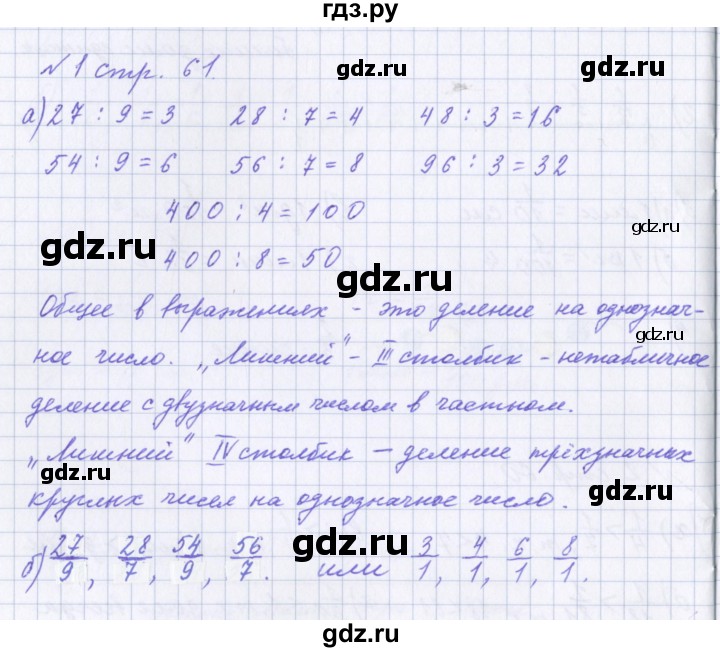 гдз.ру
№1 стр. 61.
gdz.ru gdz.ru
а) 27 : 9 = 3 28 : 7 = 4 48 : 3 = 16
54 : 9 = 6 56 : 7 = 8 96 : 3 = 32
400 : 4 = 100
gdz.ru gdz.ru
400 : 8 = 50
gdz.ru
Общее в выражениях - это деление на однознач-
ное число. „Лишний" - III столбик - нетабличное
деление с двузначным числом в частном.
„Лишний" IV столбик — деление трёхзначных
gdz.ru gdz.ru
круглых чисел на однозначное число.
б) 27/9, 28/7, 54/9, 56/7. или 3/1, 4/1, 6/1, 8/1.
gdz.ru gdz.ru
gdz.ru